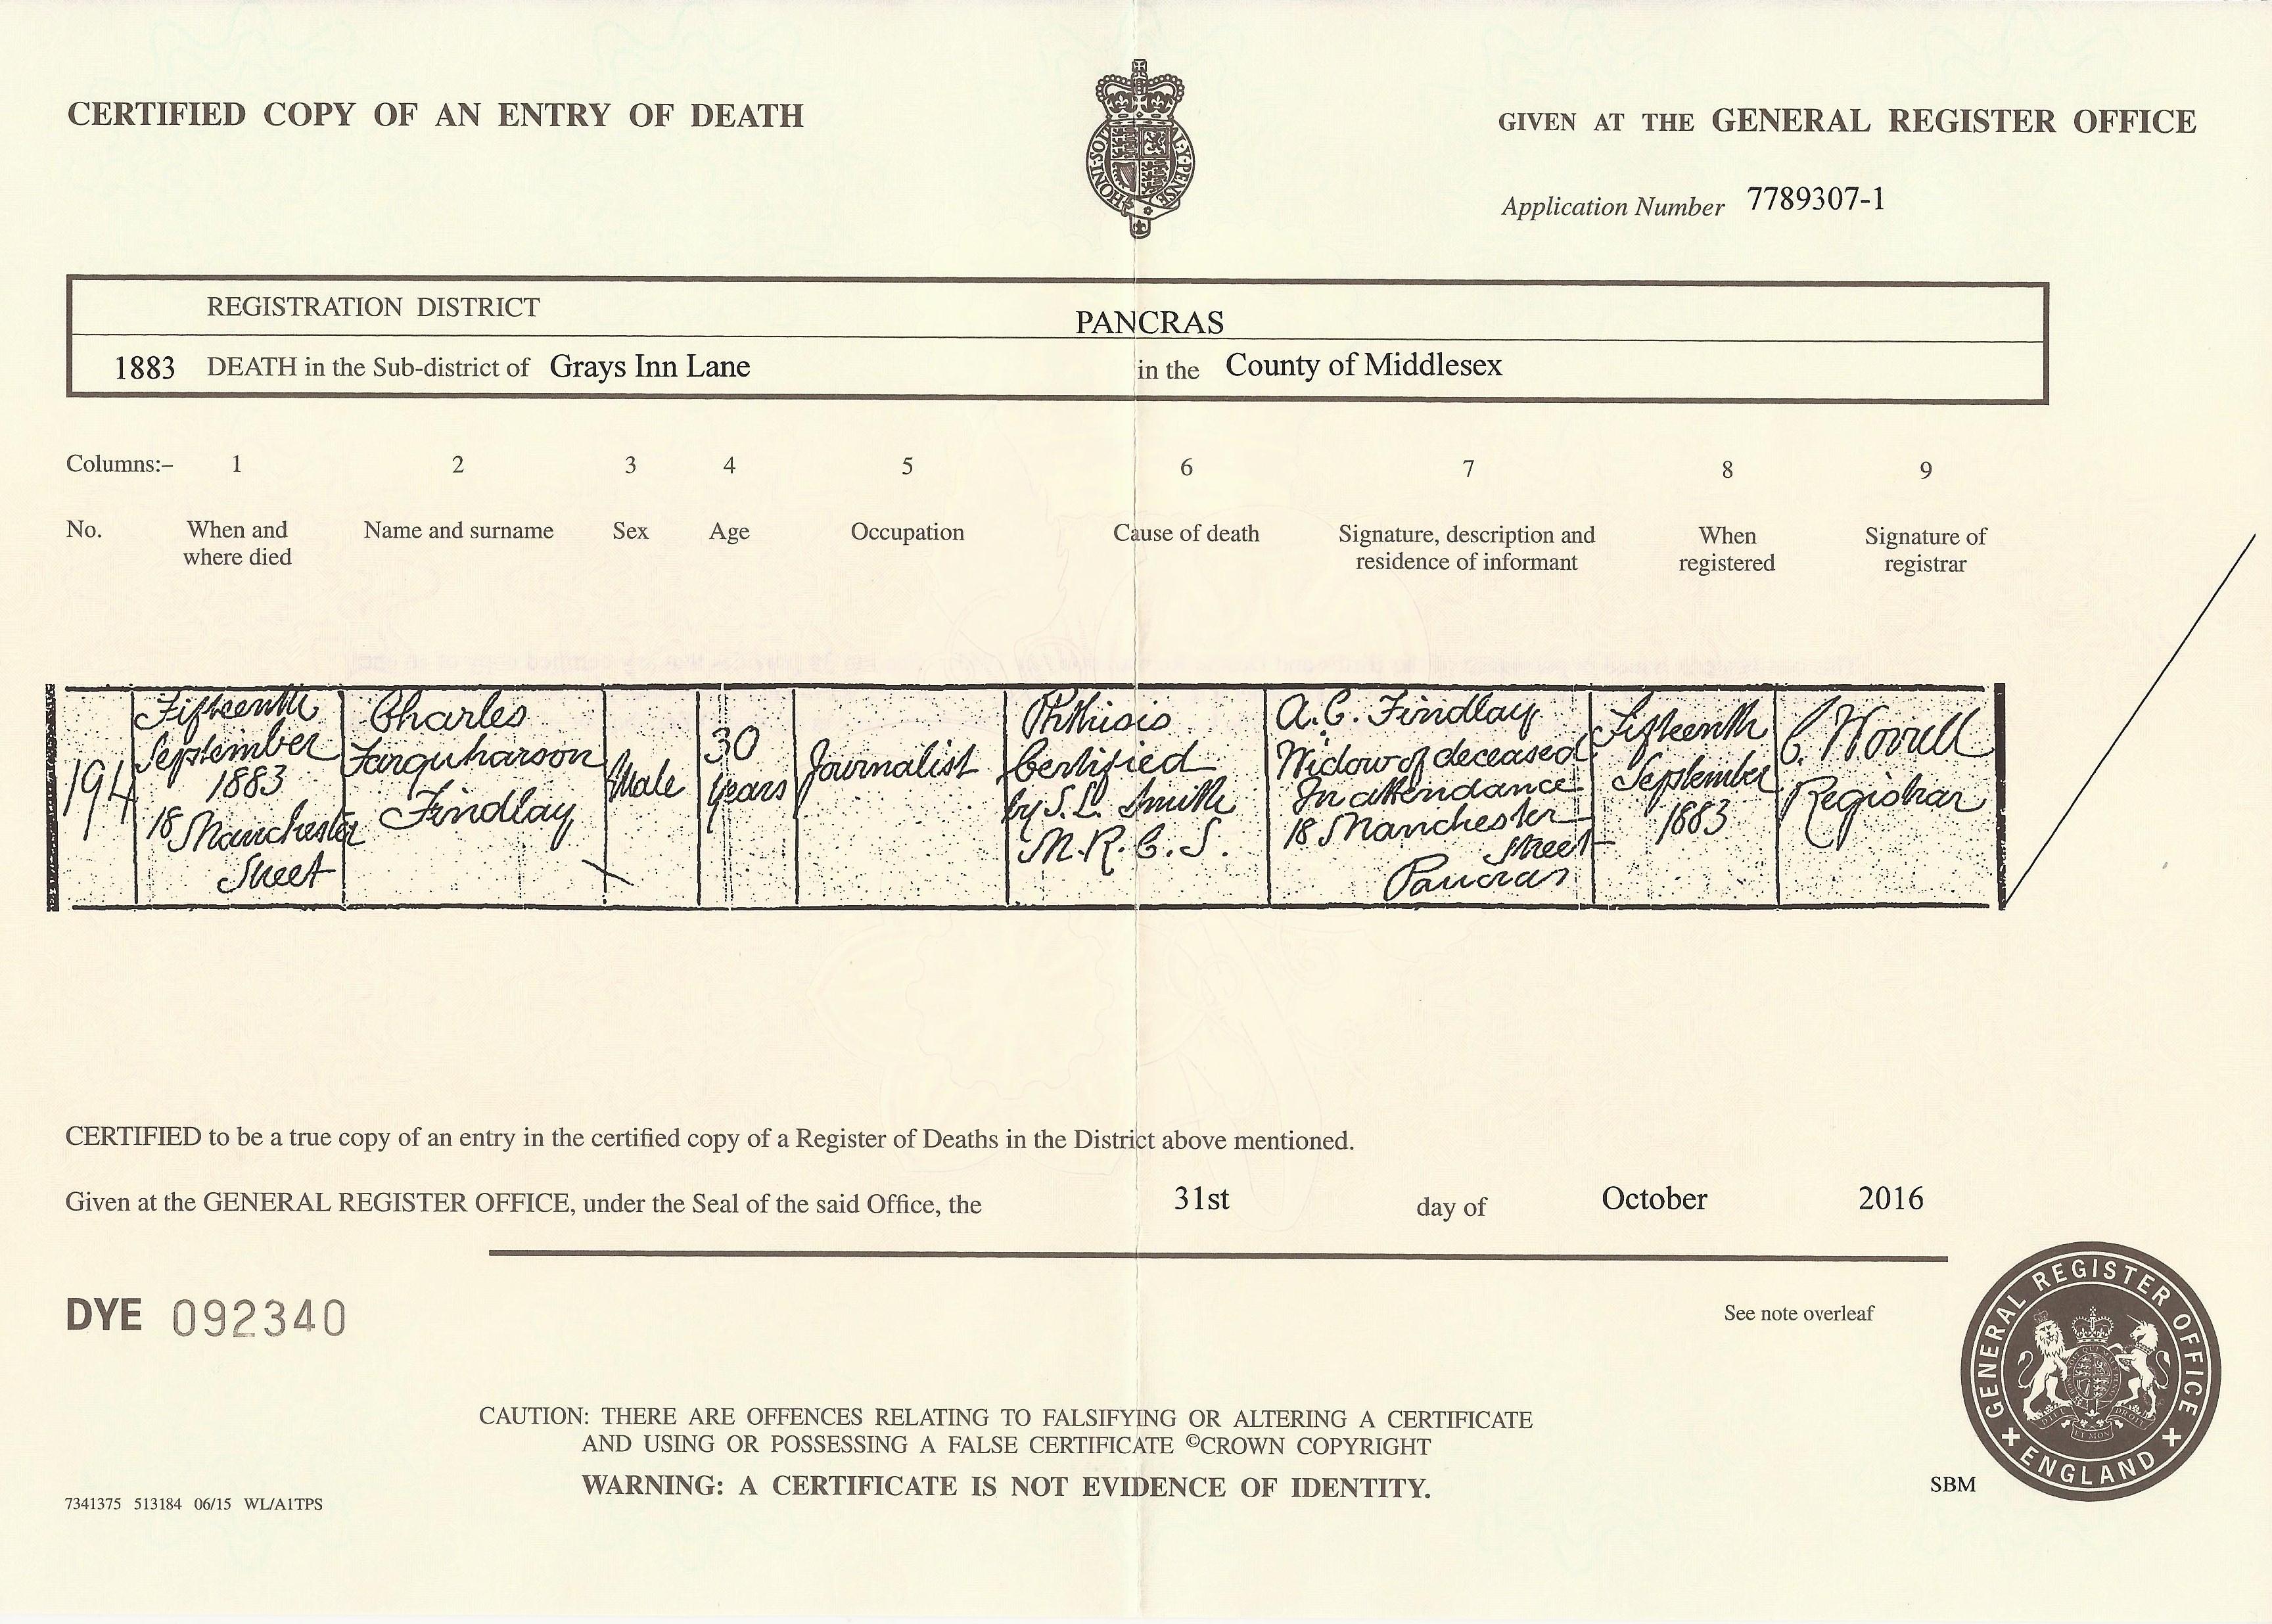 CERTIFIED COPY OF AN ENTRY OF DEATH
GIVEN AT THE GENERAL REGISTER OFFICE
HONI·SOIT
MAL·Y·PENSE
Application Number 7789307-1
REGISTRATION DISTRICT PANCRAS
1883 DEATH in the Sub-district of Grays Inn Lane in the County of Middlesex
Columns:– 1 2 3 4 5 6 7 8 9
No.
When and
where died
Name and surname
Sex
Age
Occupation
Cause of death
Signature, description and
residence of informant
When
registered
Signature of
registrar
194
Fifteenth
September
1883
18 Manchester
Street
Charles
Farquharson
Findlay
Male
30
years
Journalist
Phthisis
Certified
by S.L. Smith
M.R.C.S.
A.C. Findlay
Widow of deceased
In attendance
18 Manchester
Street
Pancras
Fifteenth
September
1883
Registrar
CERTIFIED to be a true copy of an entry in the certified copy of a Register of Deaths in the District above mentioned.
Given at the GENERAL REGISTER OFFICE, under the Seal of the said Office, the 31st day of October 2016
DYE 092340
See note overleaf
GENERAL REGISTER OFFICE
ENGLAND
CAUTION: THERE ARE OFFENCES RELATING TO FALSIFYING OR ALTERING A CERTIFICATE
AND USING OR POSSESSING A FALSE CERTIFICATE ©CROWN COPYRIGHT
WARNING: A CERTIFICATE IS NOT EVIDENCE OF IDENTITY.
SBM
7341375 513184 06/15 WL/A1TPS